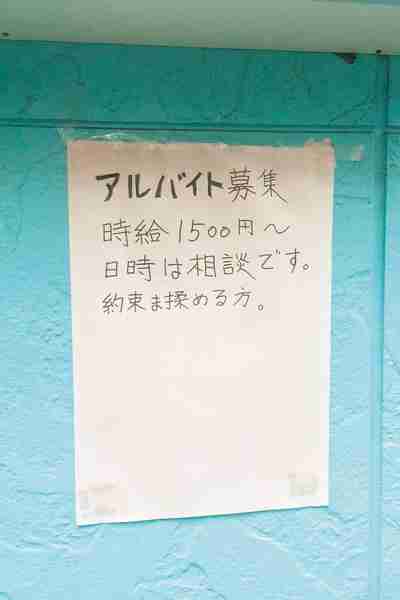 アルバイト募集
時給1500円～
日時は相談です。
約束ま揉める方。